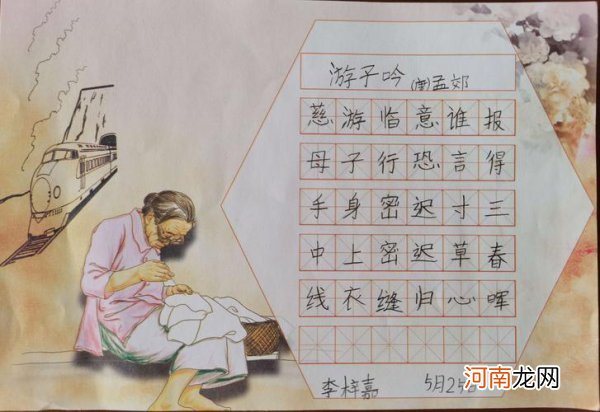 游子吟 (唐)孟郊
慈母手中线
游子身上衣
临行密密缝
意恐迟迟归
谁言寸草心
报得三春晖
李梓嘉 5月25日
河南龙网